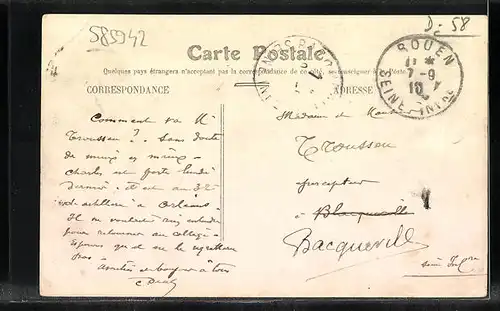 585942
D- 58
Carte Postale
Quelques pays étrangers n'acceptent pas la correspondance de ce côté, se renseigner à la Poste
CORRESPONDANCE
ADRESSE
ROUEN
7-9
10
SEINE-INFRE
Comment va Mr
Trousseau ? Sans doute
de mieux en mieux -
Charles est parti lundi
dernier. Il est au 32e
d'artillerie à Orléans.
Il ne voulait rien entendre
pour retourner au collège.
Espérons qu'il ne le regrettera
pas. Amitiés et à tous
Madame et Monsieur
Trousseau
percepteur
à Blacqueville
Bacqueville
Seine Infre